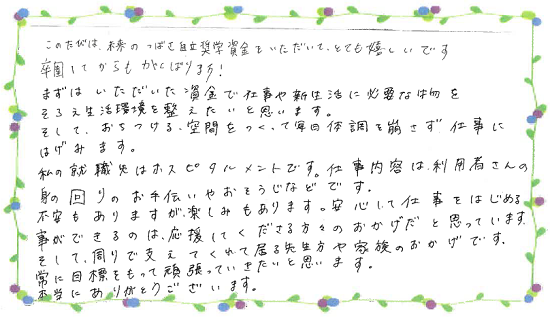 このたびは、のつばさ自立奨学資金をいただいて、とても嬉しいです
卒園してからもがんばります!
まずは いただいた資金で仕事や新生活に必要な物を
そろえ生活環境を整えたいと思います。
そして、おちつける、空間をつくって毎日体調を崩さず、仕事に
はげみます。
私の就職先はホスピタルメントです。仕事内容は、利用者さんの
身の回りのお手伝いやおそうじなどです。
不安もありますが、楽しみもあります。安心して仕事をはじめる
事ができるのは、応援してくださる方々のおかげだと思っています。
そして、周りで支えてくれて居る先生方や家族のおかげです。
常に目標をもって頑張っていきたいと思います。
本当にありがとうございます。